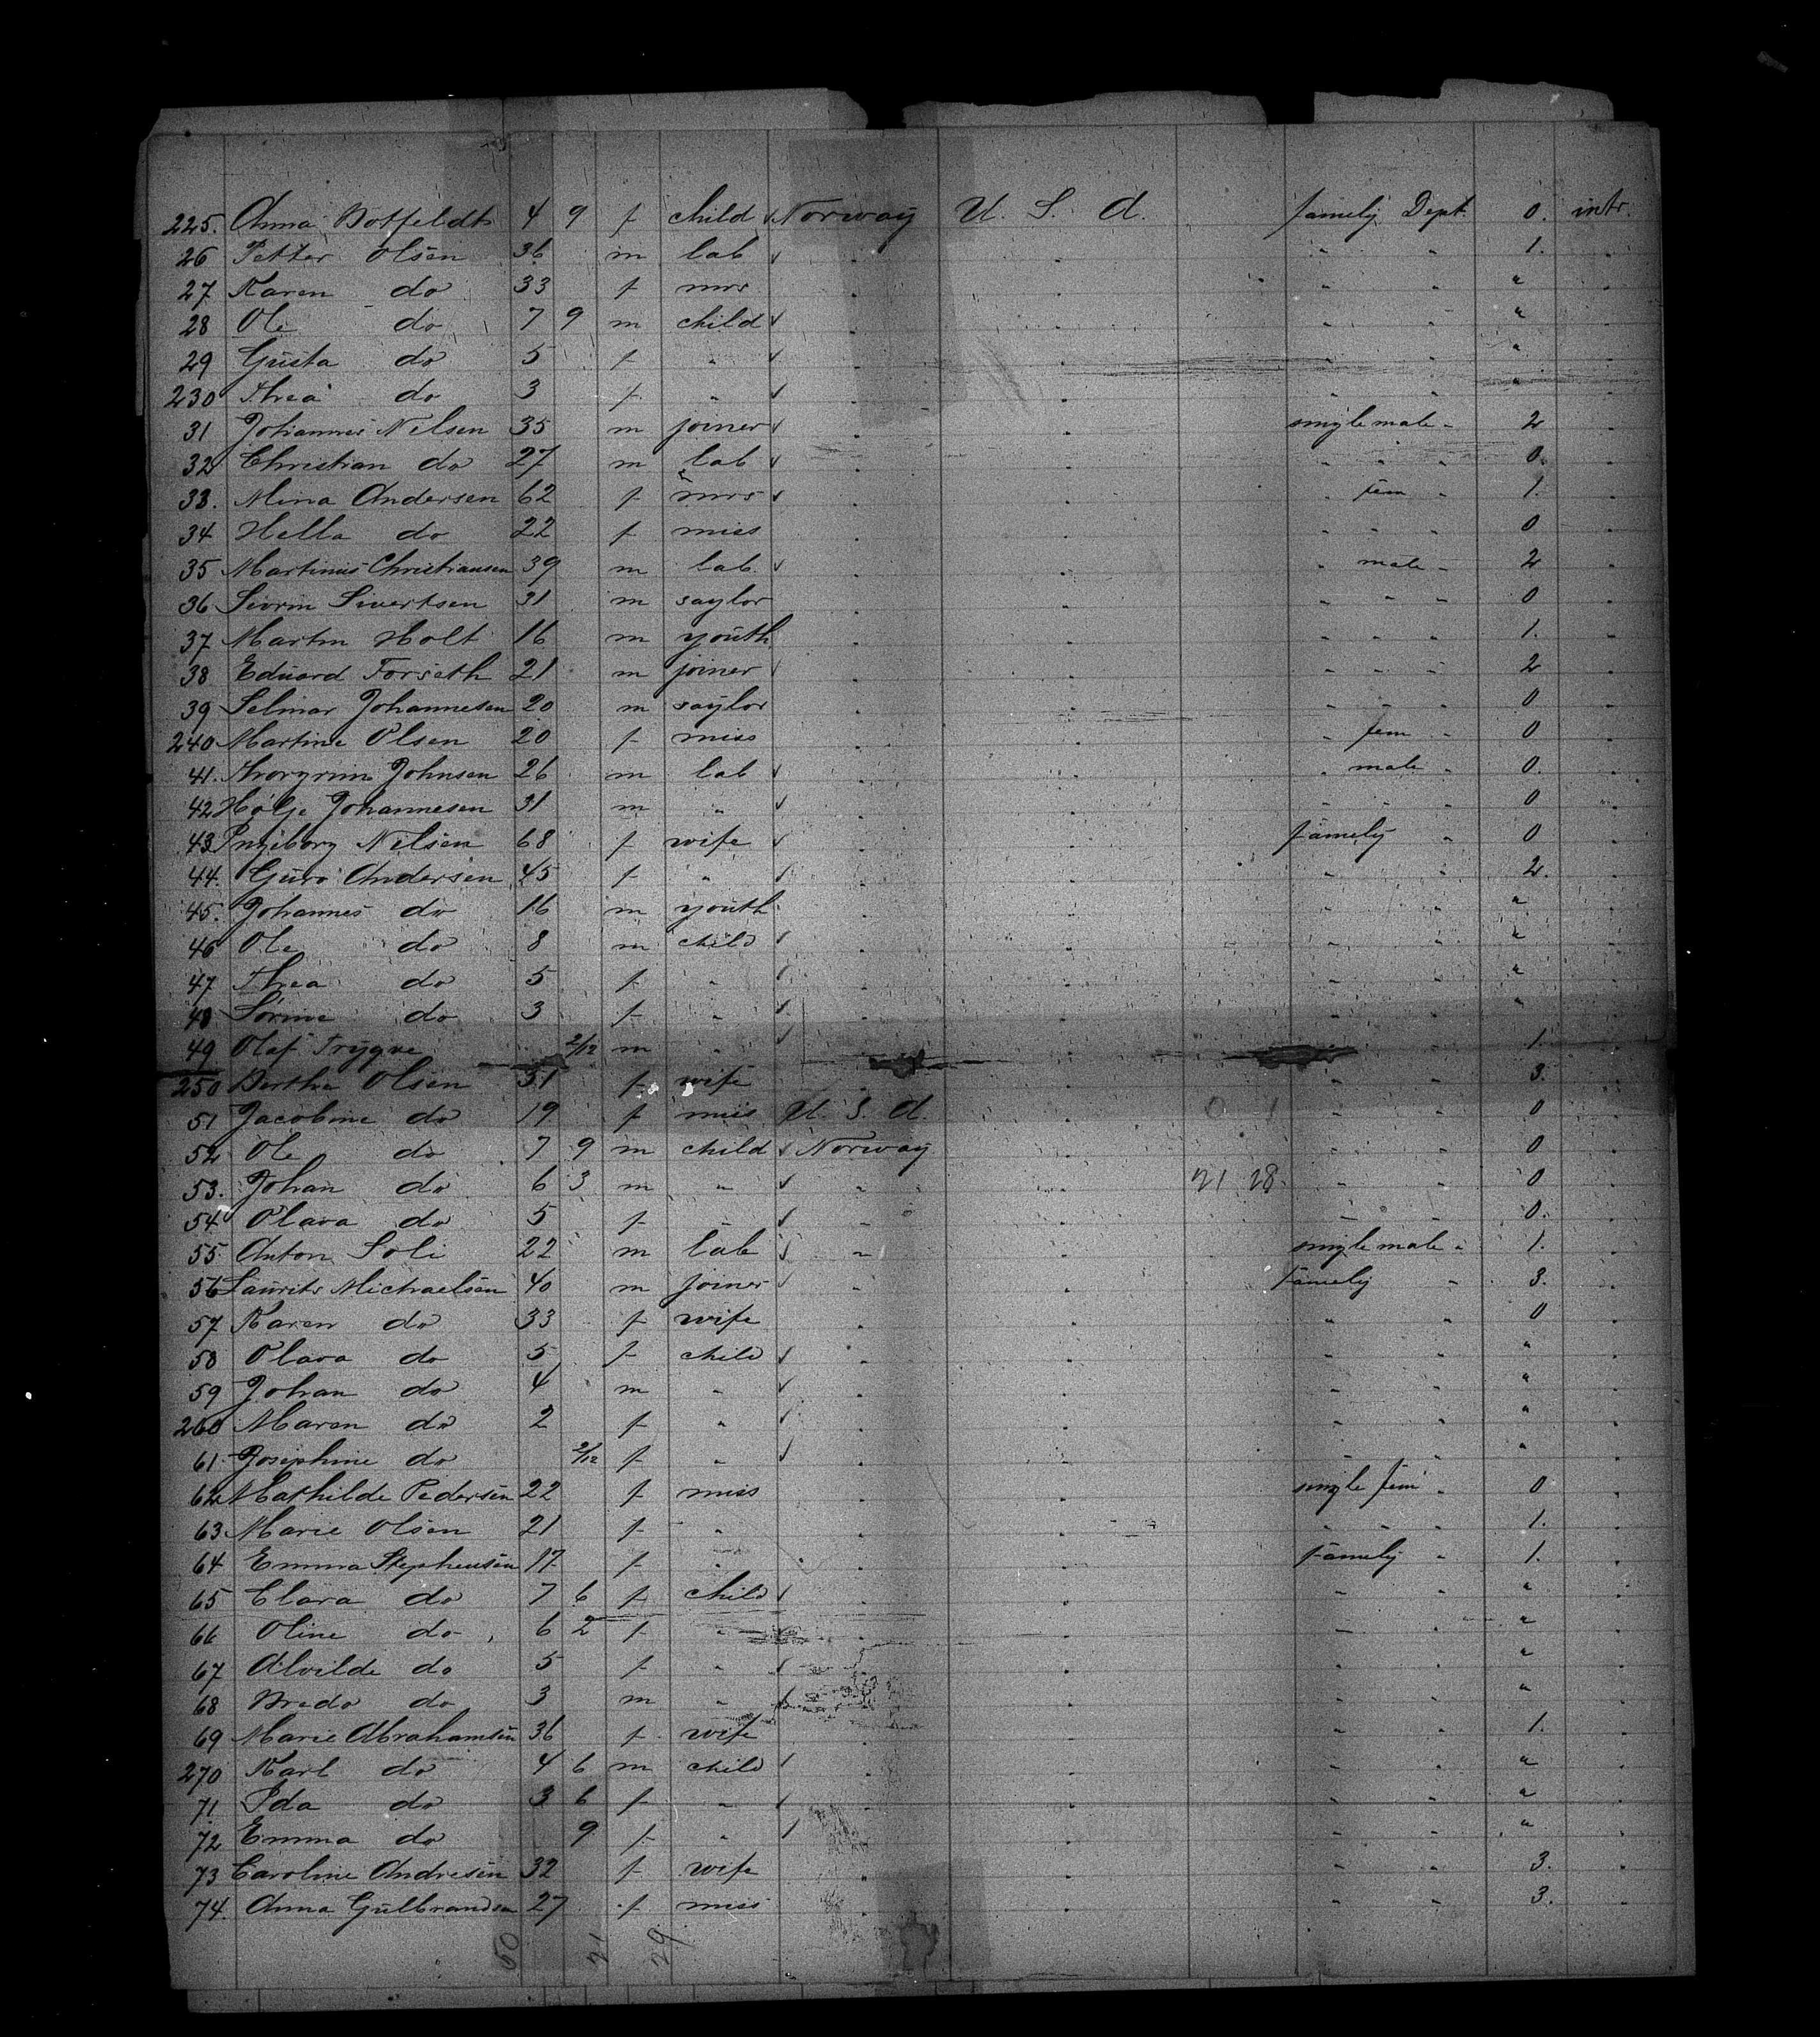 225. Anna Botfeldt 4 9 f child Norway U. S. A. famely Dept. 0. intr.
26 Petter Olsen 36 m lab " " " " 1. "
27 Karen do 33 f mrs " " " " " "
28 Ole do 7 9 m child " " " " " "
29 Gusta do 5 f " " " " " " "
230 Threa do 3 f " " " " " " "
31 Johannes Nilsen 35 m joiner " " single male " 2 "
32 Christian do 27 m lab " " " " " 0 "
33. Mina Andersen 62 f mrs " " " fem " 1. "
34 Hella do 22 f miss " " " " " 0 "
35 Martinus Christiansen 39 m lab. " " " male " 2 "
36 Sivrin Sivertsen 31 m saylor " " " " " 0 "
37 Martin Holt 16 m youth " " " " " 1. "
38 Eduard Forseth 21 m joiner " " " " " 2 "
39 Selmar Johannesen 20 m saylor " " " " " 0 "
240 Martine Olsen 20 f miss " " " fem " 0 "
41. Thorgrim Johnsen 26 m lab " " " male " 0. "
42 Hølje Johannesen 31 m " " " " " " 0 "
43 Ingeborg Nilsen 68 f wife " " famely " 0 "
44. Guro Andersen 45 f " " " " " 2. "
45. Johannes do 16 m youth " " " " " "
46 Ole do 8 m child " " " " " "
47 Threa do 5 f " " " " " " "
48 Sørine do 3 f " " " " " " "
49 Olaf Trygve 2/12 m " " " " " 1. "
250 Berthe Olsen 31 f wife " " " " 3. "
51 Jacobine do 19 f miss U. S. A. 0 1 " " 0 "
52 Ole do 7 9 m child Norway " " " 0 "
53. Johan do 6 3 m " " " 21 28 " " 0 "
54 Olava do 5 f " " " " " 0. "
55 Anton Soli 22 m lab " " single male " 1. "
56 Laurits Michaelsen 40 m joiner " " famely " 3. "
57 Karen do 33 f wife " " " " 0 "
58 Olava do 5 f child " " " " " "
59 Johan do 4 m " " " " " " "
260 Maren do 2 f " " " " " " "
61. Josephine do 2/12 f " " " " " " "
62 Mathilde Pedersen 22 f miss " " single fem " 0 "
63 Marie Olsen 21 f " " " " " " 1. "
64 Emma Stephensen 17 f " " " famely " 1. "
65 Clara do 7 6 f child " " " " " "
66 Oline do 6 2 f " " " " " " "
67 Alvilde do 5 f " " " " " " "
68 Bredo do 3 m " " " " " " "
69 Marie Abrahamsen 36 f wife " " " " 1. "
270 Karl do 4 6 m child " " " " " "
71 Ida do 3 6 f " " " " " " "
72 Emma do 9 f " " " " " " "
73 Caroline Andresen 32 f wife " " " " 3. "
74. Anna Gulbrandsen 27 f miss " " " " 3. "
50 21 29